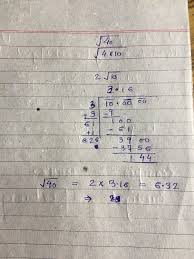 √40
√4×10
2√10
3.16
3 | 10.00 00
+3 | -9
61 | 100
+1 | -61
626 | 3900
-3756
144
√40 = 2 × 3.16 = 6.32
⇒